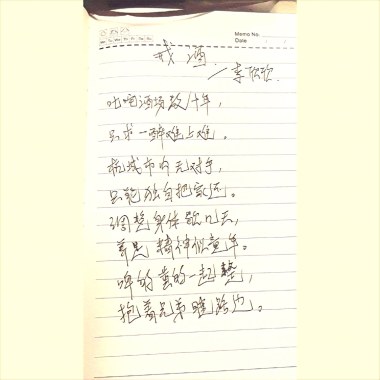 Memo No.
Date
戒酒
/李欣欣
叱咤酒场数十年,
只求一醉难上难。
杭城市内无对手,
只能独自把家还。
调整身体歇几天,
养足精神似童年。
啤的黄的一起整,
抱着兄弟瞎